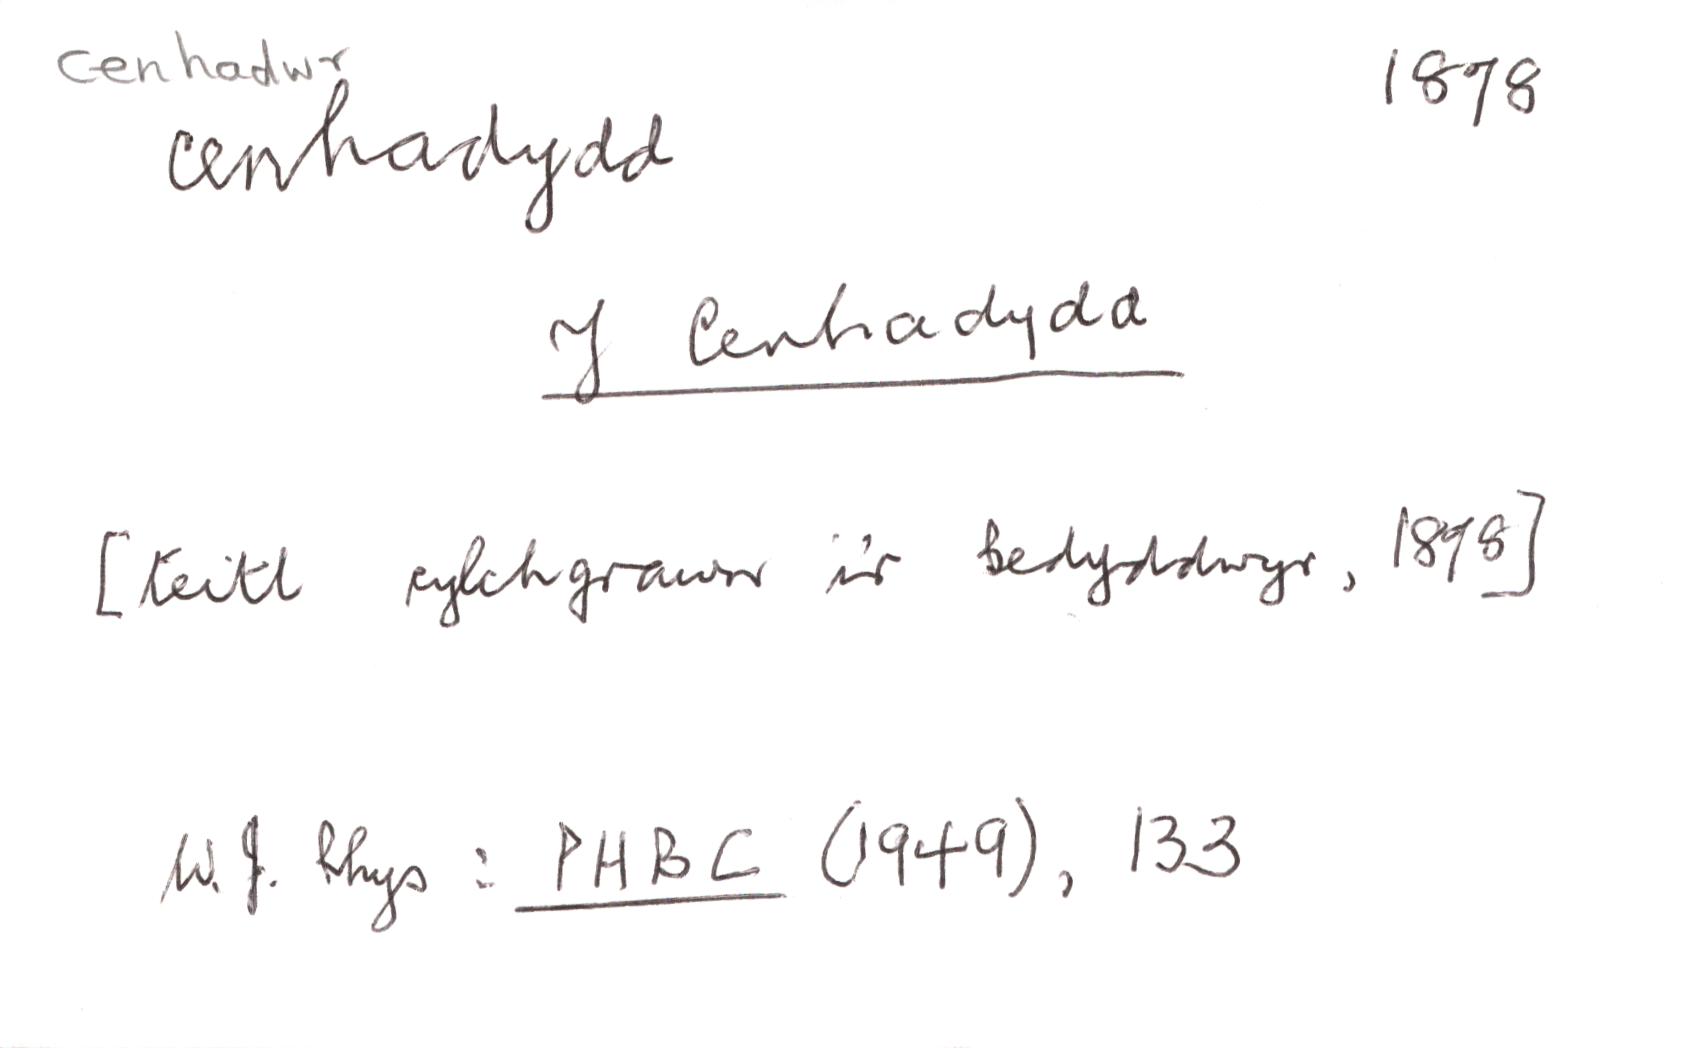 cenhadwr
cenhadydd 1878
Y Cenhadydd
[teitl cylchgrawn i'r Bedyddwyr, 1878]
W. J. Rhys : PHBC (1949), 133